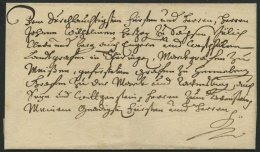 Dem Durchleuchtigsten Fürsten und Herren, Herren
Johann Wilhelmen Hertzog zu Sachsen Gülich
Cleve und Berg auch Engern und Westphalen
Landtgrafen in Thüringen Marckgrafen zu
Meissen, gefürsteten Grafen zu Hennenberg
Grafen zu der Marck und Ravensberg, auch
Sayn und Wittgenstein, Herren zu Ravenstein,
Meinem Gnedigsten Fürsten und Herren,